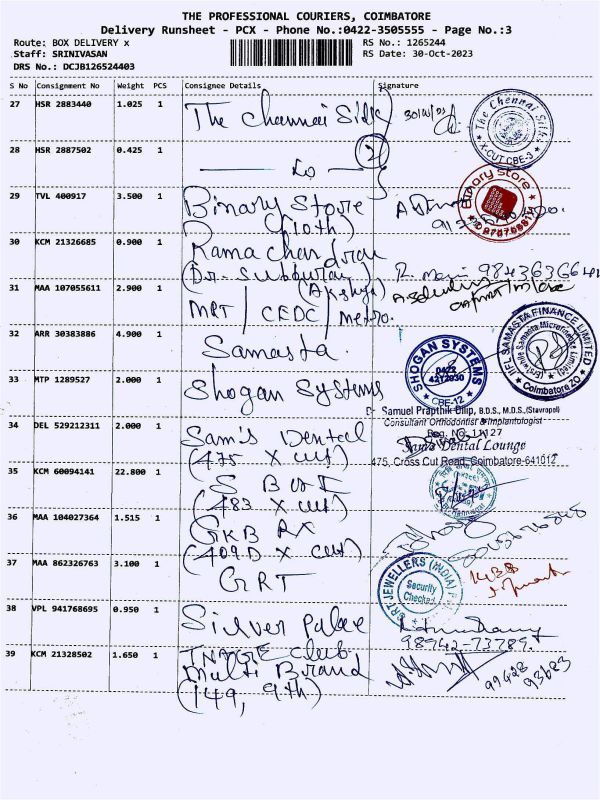 THE PROFESSIONAL COURIERS, COIMBATORE
Delivery Runsheet - PCX - Phone No.:0422-3505555 - Page No.:3
Route: BOX DELIVERY x RS No.: 1265244
Staff: SRINIVASAN RS Date: 30-Oct-2023
DRS No.: DCJB126524403
S No Consignment No Weight PCS Consignee Details Signature
27 HSR 2883440 1.025 1 The Chennai Silk
The Chennai Silk
X-CUT CBE-3
28 HSR 2887502 0.425 1 — Do — 2
29 TVL 400917 3.500 1 Binary Store
(10th)
Binary Store
30 KCM 21326685 0.900 1 Rama Chandran
(Dr. Subburay) 9843636641
31 MAA 107055611 2.900 1 (Akshya)
MRT / CEDC / Metro.
32 ARR 30383886 4.900 1 Samasta
IIFL SAMASTA FINANCE LIMITED
Coimbatore ZO
33 MTP 1289527 2.000 1 Shogan Systems
SHOGAN SYSTEMS
0422
CBE-12
34 DEL 529212311 2.000 1 Sam's Dental
(475 X cut)
Dr Samuel Prapthik Dilip, B.D.S., M.D.S.,(Stavropol)
Consultant Orthodontist & Implantologist
Sams Dental Lounge
475, Cross Cut Road, Coimbatore-641012
35 KCM 60094141 22.800 1 S B O I
(483 X cut)
36 MAA 104027364 1.515 1 GKB RX
(409D X cut)
37 MAA 862326763 3.100 1 GRT
GRT JEWELLERS (INDIA)
Security
Checked
38 VPL 941768695 0.950 1 Silver Palace
98942-73789
39 KCM 21328502 1.650 1 Image club
Multi Brand
(149, 9th)
99428
93683